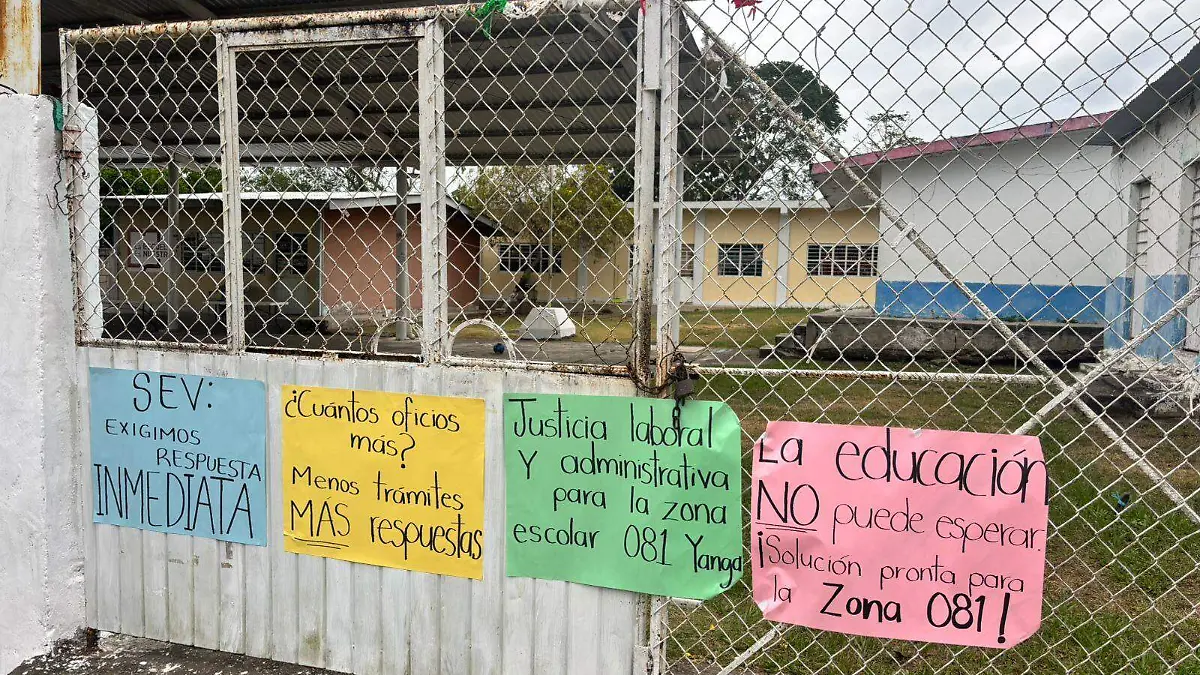 SEV:
EXIGIMOS
RESPUESTA
INMEDIATA
¿Cuántos oficios
más?
Menos trámites
MÁS respuestas
Justicia laboral
Y administrativa
para la zona
escolar 081 Yanga
La educación
NO puede esperar.
¡Solución pronta para
la Zona 081!